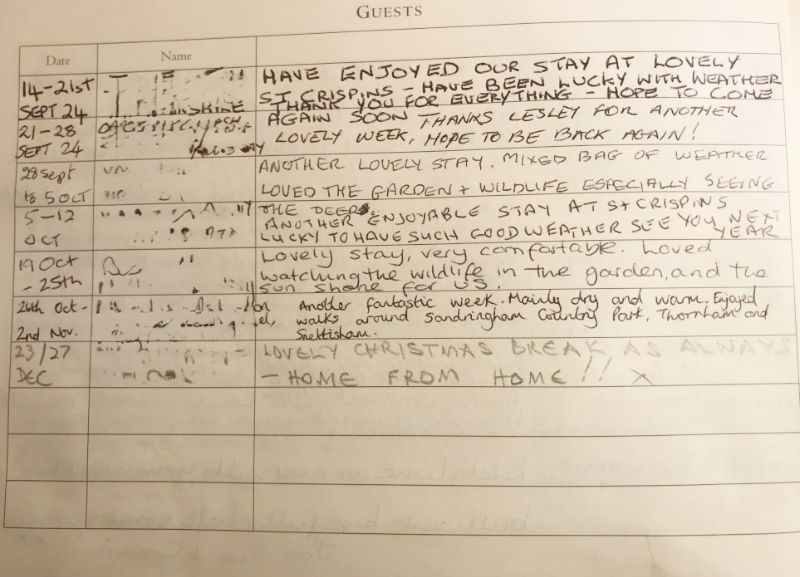 GUESTS
Date Name
14-21st HAVE ENJOYED OUR STAY AT LOVELY
ST CRISPINS - HAVE BEEN LUCKY WITH WEATHER
SEPT 24 THANK YOU FOR EVERYTHING - HOPE TO COME
AGAIN SOON THANKS LESLEY FOR ANOTHER
21-28
SEPT 24 LOVELY WEEK, HOPE TO BE BACK AGAIN!
28 Sept ANOTHER LOVELY STAY. MIXED BAG OF WEATHER
to 5 OCT LOVED THE GARDEN + WILDLIFE ESPECIALLY SEEING
THE DEER.
5-12 ANOTHER ENJOYABLE STAY AT St CRISPINS
OCT LUCKY TO HAVE SUCH GOOD WEATHER SEE YOU NEXT
YEAR
19 Oct Lovely stay, very comfortable. Loved
- 25th watching the wildlife in the garden, and the
sun shone for us.
26th Oct - Another fantastic week. Mainly dry and warm. Enjoyed
walks around Sandringham Country Park, Thornham and
2nd Nov. Snettisham.
23/27 LOVELY CHRISTMAS BREAK AS ALWAYS
DEC - HOME FROM HOME!! X